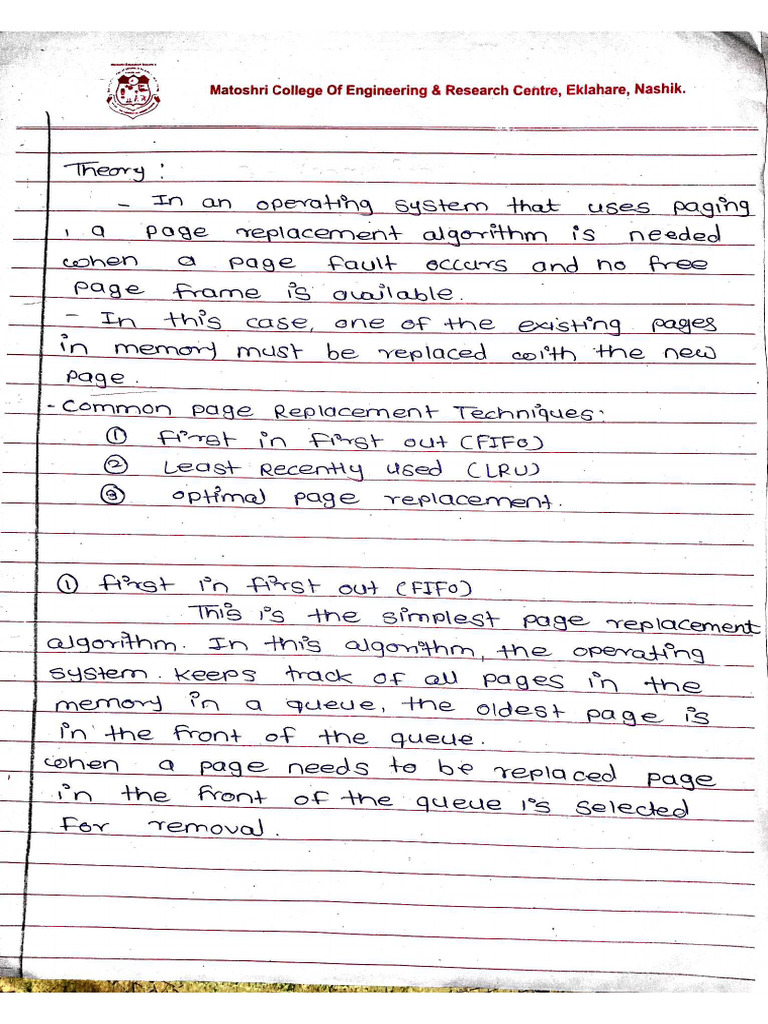 Matoshri College Of Engineering & Research Centre, Eklahare, Nashik.
Theory :
- In an operating system that uses paging
, a page replacement algorithm is needed
when a page fault occurs and no free
page frame is available.
- In this case, one of the existing pages
in memory must be replaced with the new
page.
- Common page Replacement Techniques:
① First in First out (FIFO)
② Least Recently used (LRU)
③ optimal page replacement.
① First in First out (FIFO)
This is the simplest page replacement
algorithm. In this algorithm, the operating
system keeps track of all pages in the
memory in a queue, the oldest page is
in the front of the queue.
when a page needs to be replaced page
in the front of the queue is selected
for removal.